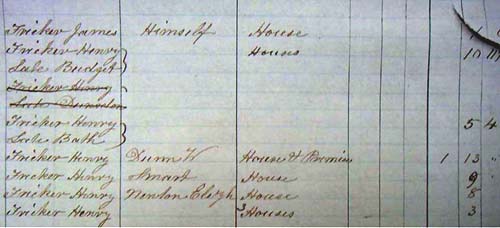 Fricker James Himself House 1
Fricker Henry Houses 10
Late Budget
Fricker Henry
Late
Fricker Henry 5 4
Late Bath
Fricker Henry Dunn W House & Premises 1 13
Fricker Henry Smart House 9
Fricker Henry Newton Elizh House 8
Fricker Henry 3 Houses 3